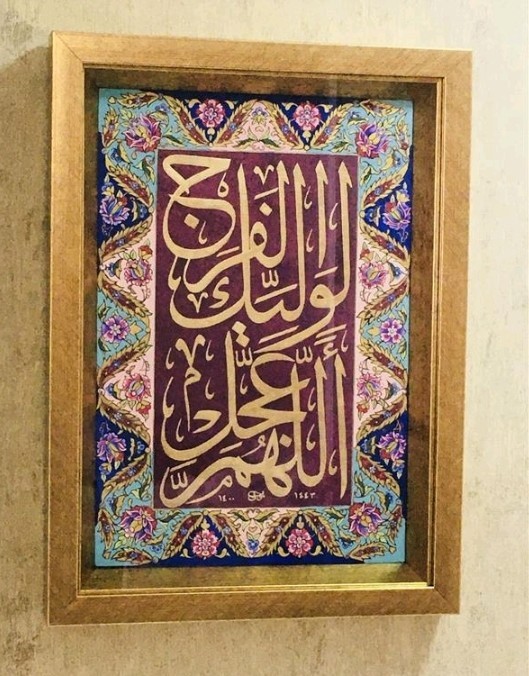 اَللّٰهُمَّ
عَجِّل
لِوَلِیِّكَ
الفَرَج
١٤٠٠ ١٤٤٣